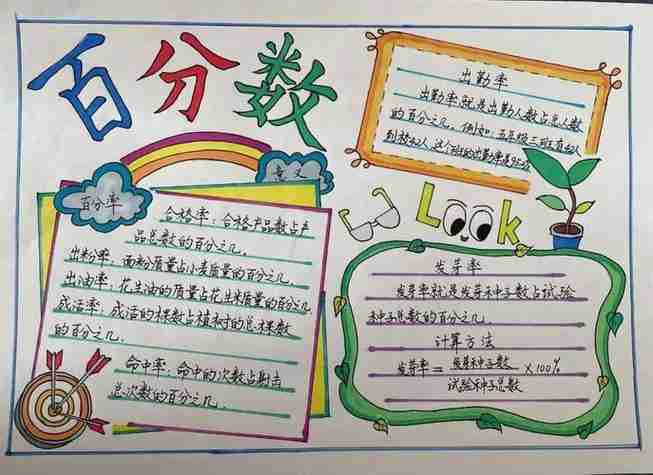 百分数
百分率
意义
合格率：合格产品数占产
品总数的百分之几。
出粉率：面粉质量占小麦质量的百分之几。
出油率：花生油的质量占花生米质量的百分之几。
成活率：成活的棵数占植树的总棵数
的百分之几。
命中率：命中的次数占射击
总次数的百分之几。
出勤率
出勤率就是出勤人数占总人数
的百分之几。例如：五年级三班有
到校 人，这个班的出勤率是95%
Look
发芽率
发芽率就是发芽种子数占试验
种子总数的百分之几。
计算方法
发芽率＝发芽种子数×100%
试验种子总数